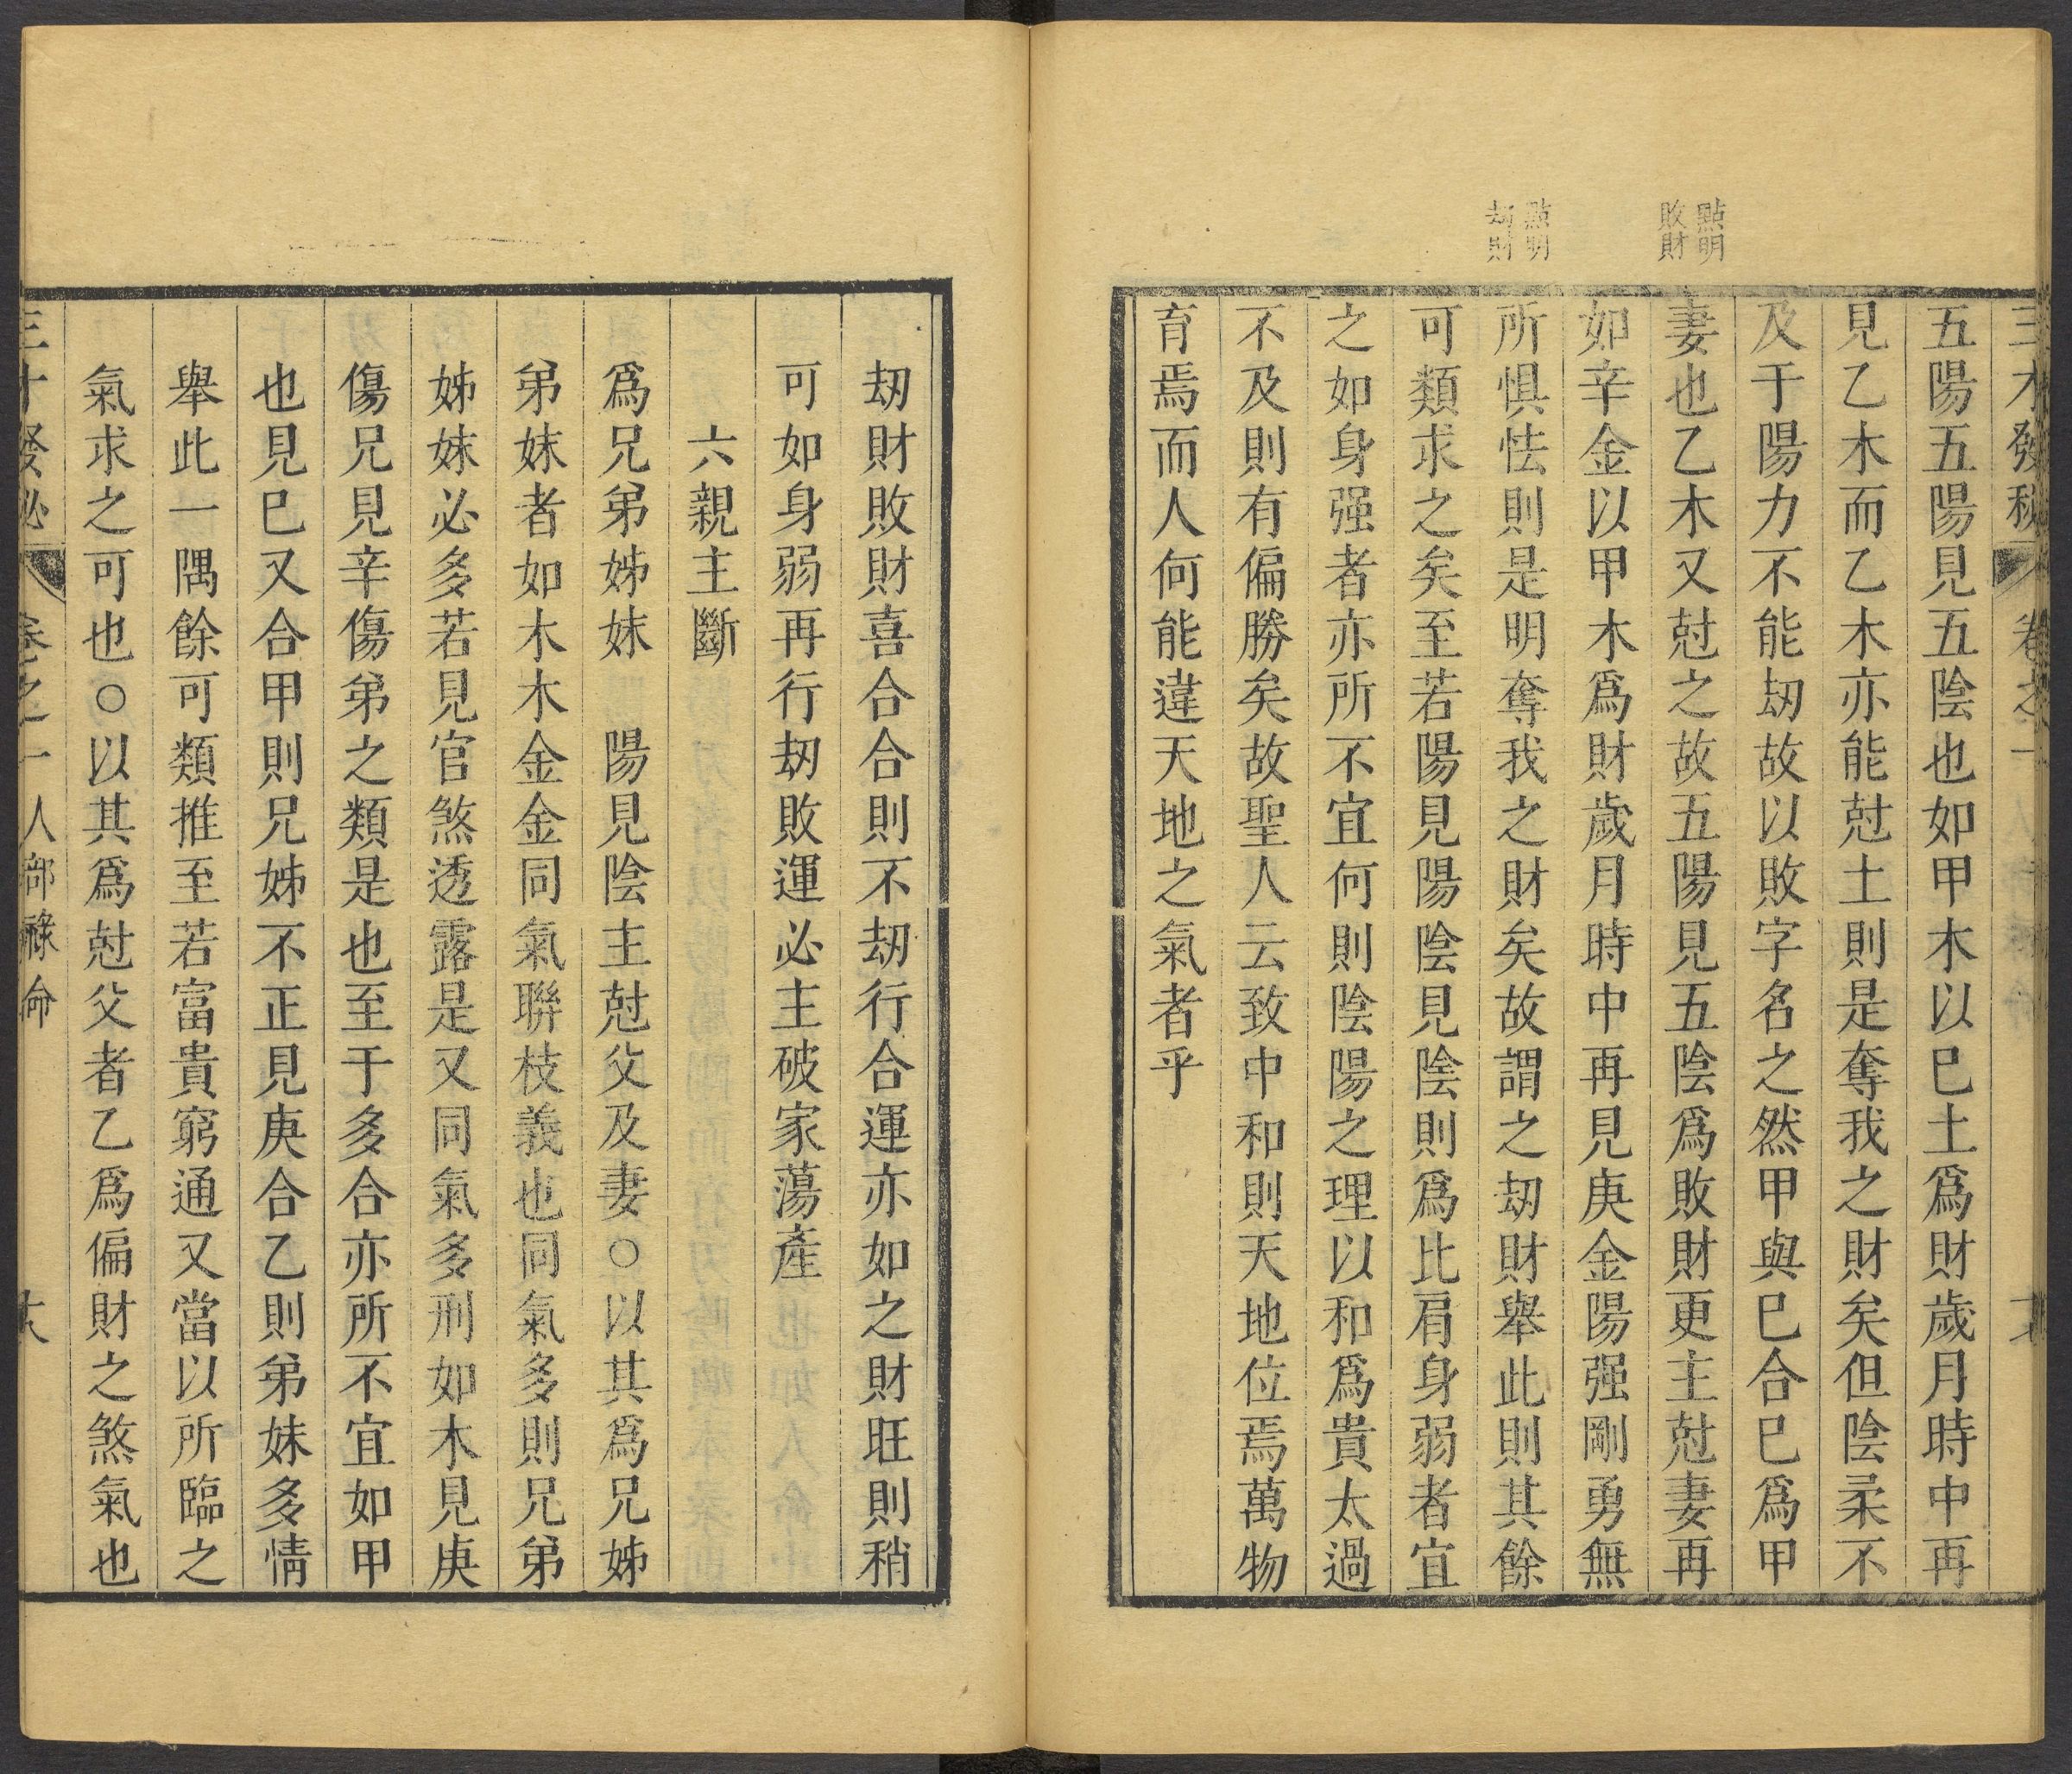 三才發秘 卷之一
點明
敗財
點明
刼財
五陽五陽見五陰也如甲木以巳土爲財歲月時中再
見乙木而乙木亦能尅土則是奪我之財矣但陰柔不
及于陽力不能刼故以敗字名之然甲與巳合巳爲甲
妻也乙木又尅之故五陽見五陰爲敗財更主尅妻再
如辛金以甲木爲財歲月時中再見庚金陽强剛勇無
所惧怯則是明奪我之財矣故謂之刼財舉此則其餘
可類求之矣至若陽見陽陰見陰則爲比肩身弱者宜
之如身强者亦所不宜何則陰陽之理以和爲貴太過
不及則有偏勝矣故聖人云致中和則天地位焉萬物
育焉而人何能違天地之氣者乎
刼財敗財喜合合則不刼行合運亦如之財旺則稍
可如身弱再行刼敗運必主破家蕩產
六親主斷
爲兄弟姊妹 陽見陰主尅父及妻○以其爲兄姊
弟妹者如木木金金同氣聨枝義也同氣多則兄弟
姊妹必多若見官煞透露是又同氣多刑如木見庚
傷兄見辛傷弟之類是也至于多合亦所不宜如甲
也見巳又合甲則兄姊不正見庚合乙則弟妹多情
舉此一隅餘可類推至若富貴窮通又當以所臨之
氣求之可也○以其爲尅父者乙爲偏財之煞氣也
三才發秘 卷之一 人部祿命